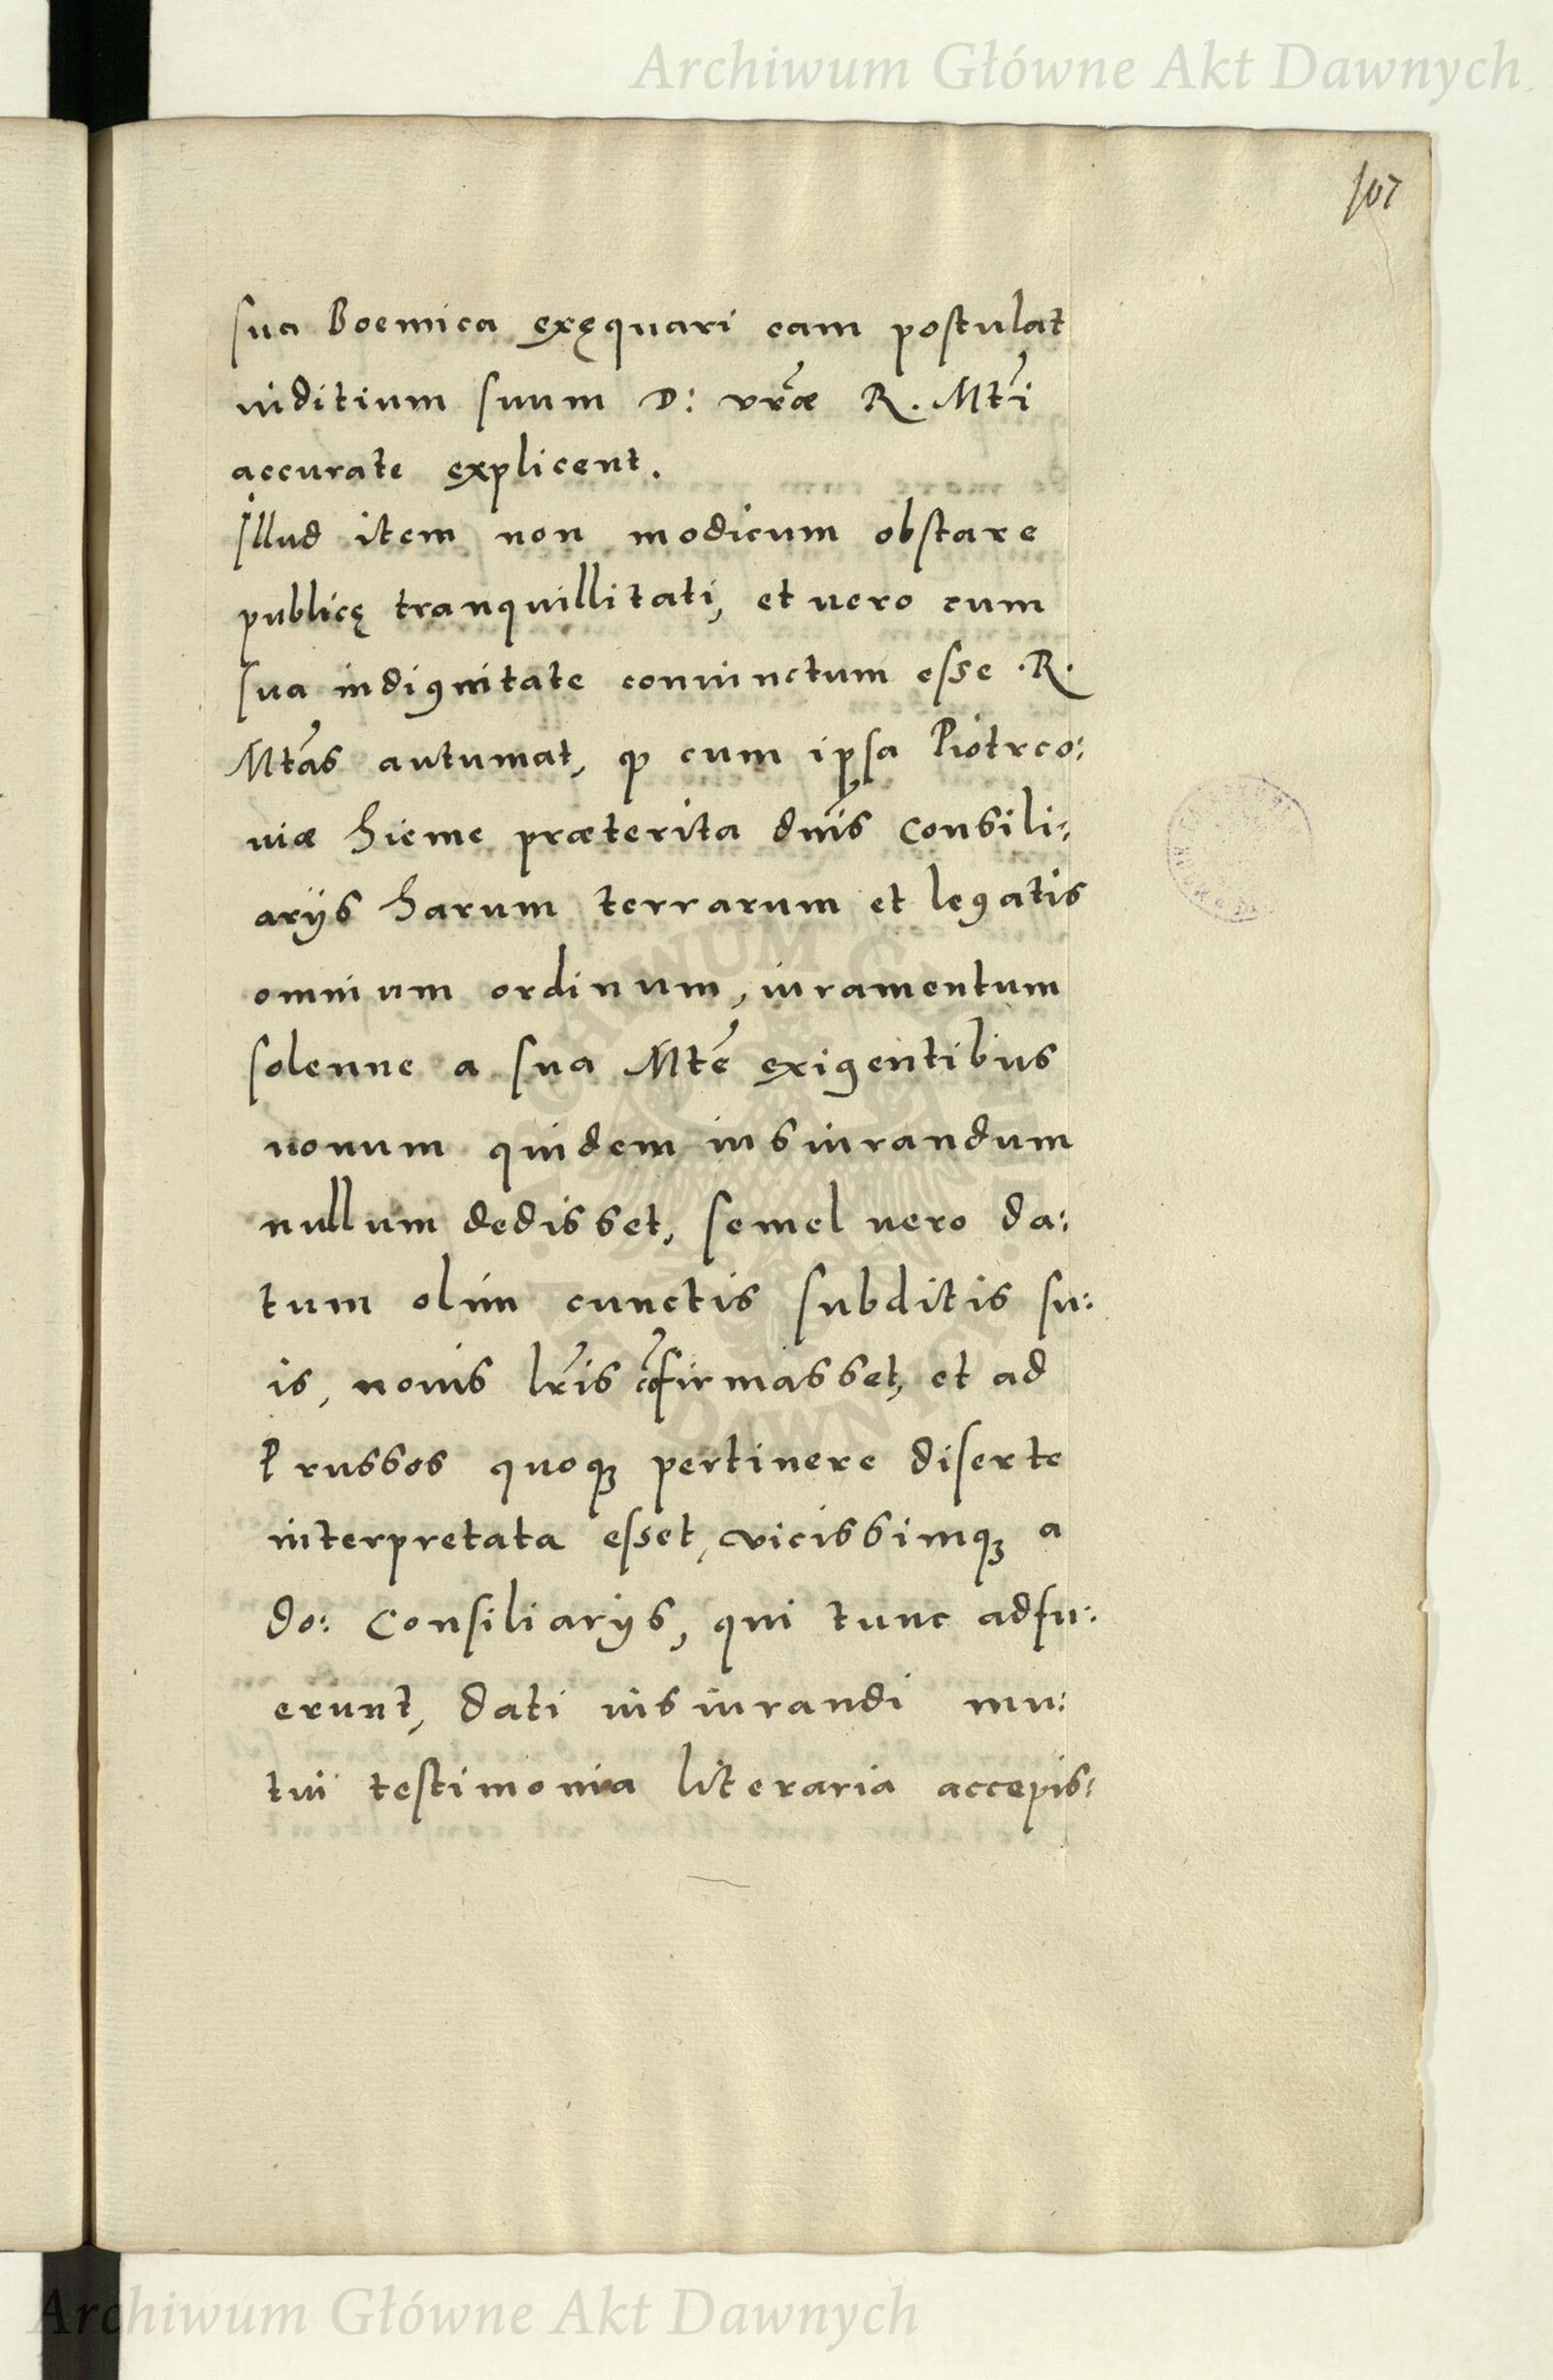 Archiwum Główne Akt Dawnych
107
sua Boemica exęquari eam postulat
iuditium suum D: vr̃æ R. Mtĩ
accurate explicent.
Illud item non modicum obstare
publicę tranquillitati, et uero cum
sua indignitate coniunctum esse .R.
Mtãs autumat, ꝙ cum ipsa Piotrco:
uiæ hieme præterita dnĩs Consili:
arijs harum terrarum et legatis
omnium ordinum, iuramentum
solenne a sua Mtẽ exigentibus
nouum quidem iusiurandum
nullum dedisset, semel uero da:
tum olim cunctis subditis su:
is, nouis lr̃is cõfirmasset, et ad
Prussos quoqꝫ pertinere diserte
interpretata esset, vicissimqꝫ a
do: Consiliarijs, qui tunc adfu:
erunt, dati iusiurandi mu:
tui testimonia literaria accepis:
Archiwum Główne Akt Dawnych